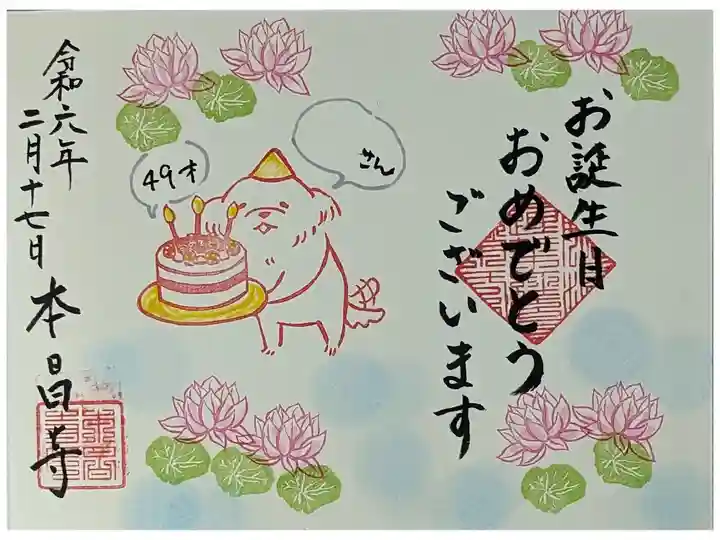 お誕生日
おめでとう
ございます
さん
49才
令和六年
二月十七日
本昌寺